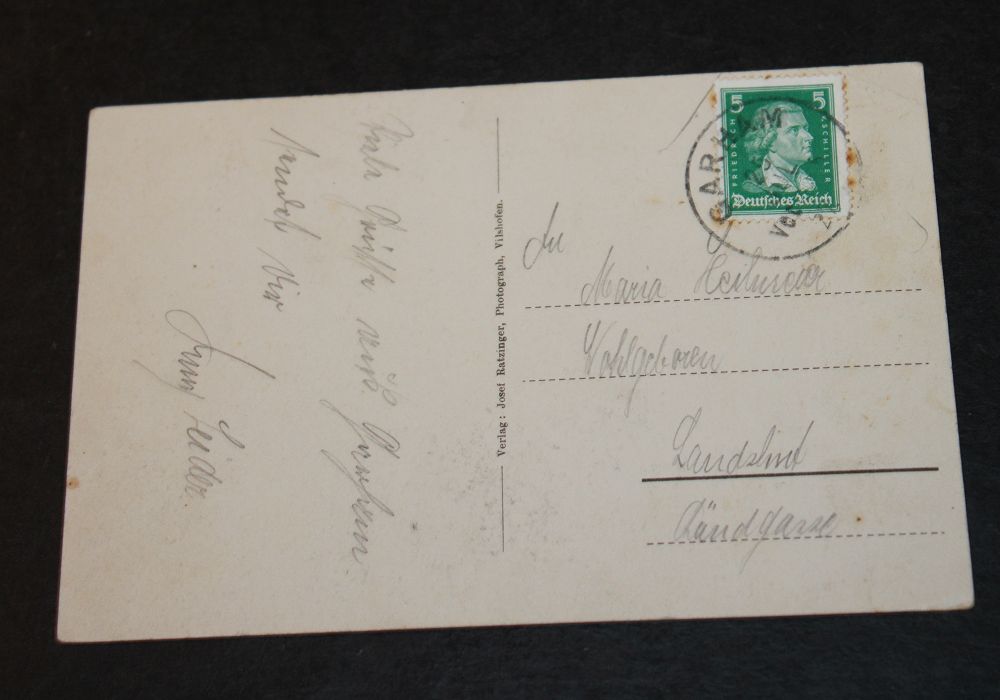 Viele Grüße aus Garham
sendet Dir
5 5
FRIEDRICH V. SCHILLER
Deutsches Reich
GARHAM
Verlag: Josef Ratzinger, Photograph, Vilshofen.
An
Maria
Wohlgeboren
Landshut
Ländgasse